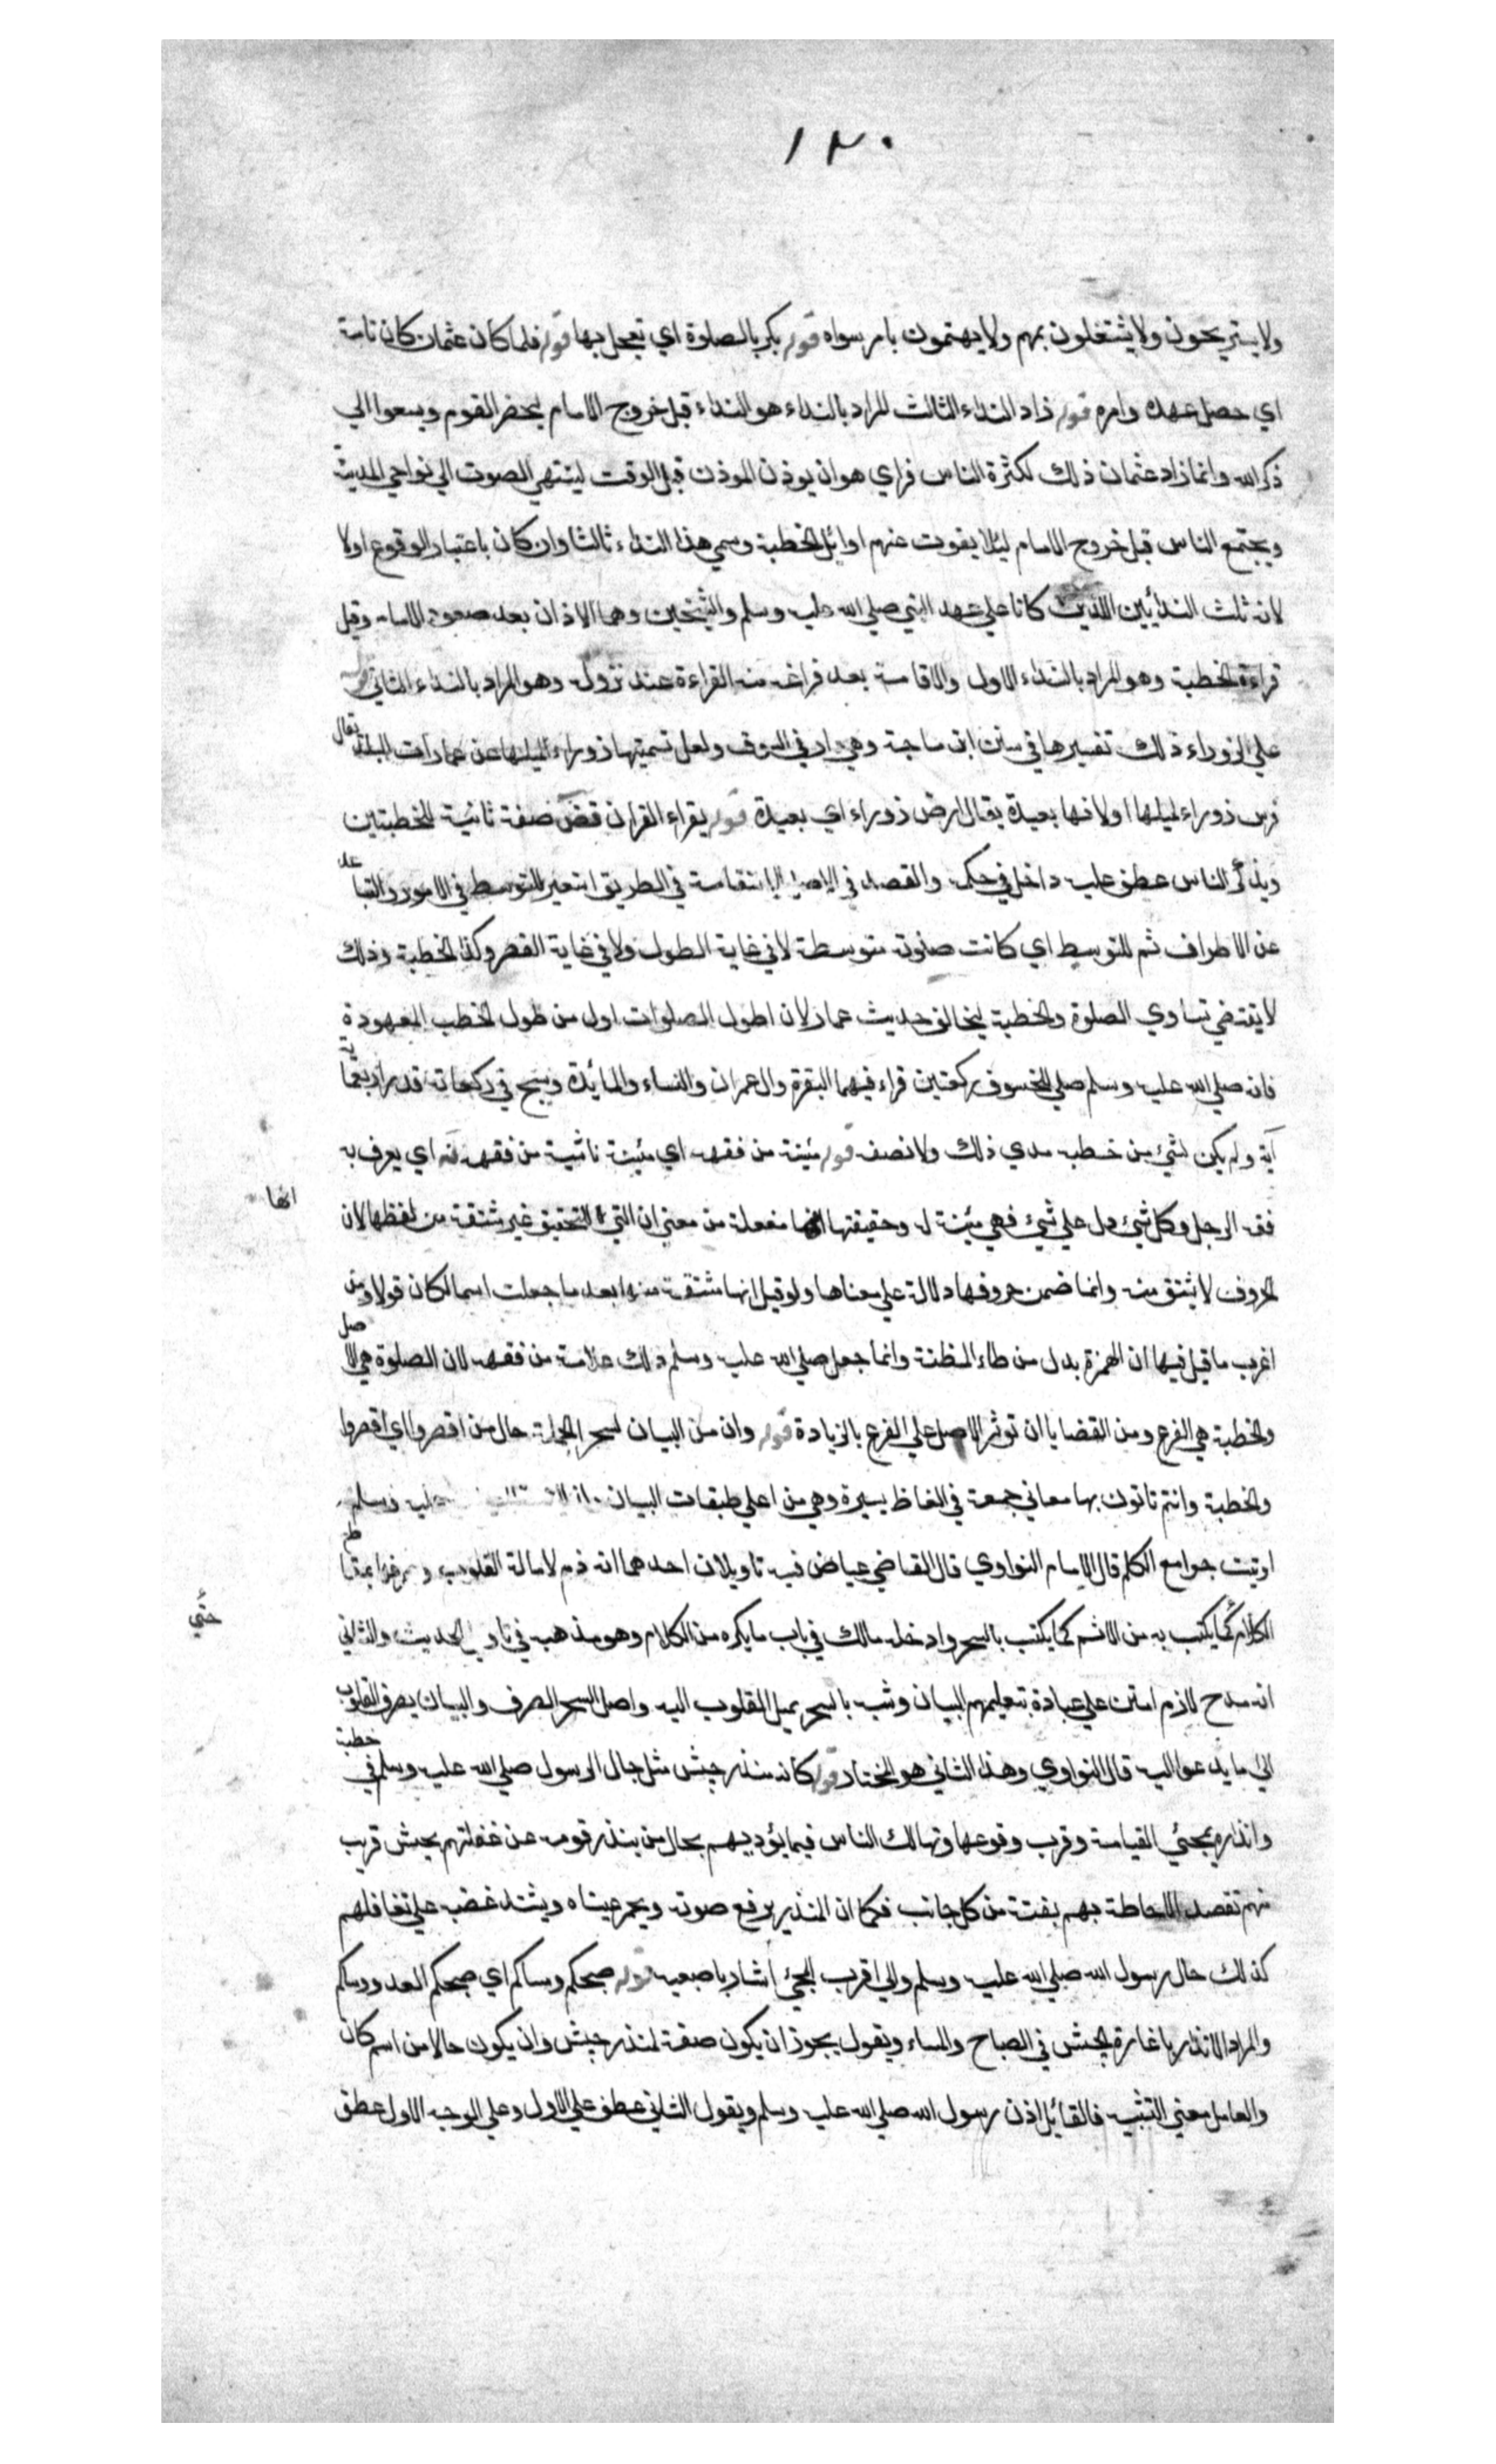 ١٢٠
ولا يستريحون ولا يشتغلون بهم ولا يهتمون بامر سواه قوله بكر بالصلوة اي تعجل بها قوله فلما كان عثمان كان تامة
اي حصل عهده وامره قوله زاد النداء الثالث المراد بالنداء هو النداء قبل خروج الامام ليحضر القوم ويسعوا الي
ذكر الله وانما زاد عثمان ذلك لكثرة الناس فراي هو ان يوذن الموذن قبل الوقت لينتهي الصوت الي نواحي المدينة
ويجتمع الناس قبل خروج الامام ليلا يفوت عنهم اوائل الخطبة وسمي هذا النداء ثالثا وان كان باعتبار الوقوع اولا
لانه ثلث الندائين اللذين كانا علي عهد النبي صلي الله عليه وسلم والشيخين وهما الاذان بعد صعود الامام وقبل
قراءة الخطبة وهو المراد بالنداء الاول والاقامة بعد فراغه من القراءة عند نزوله وهو المراد بالنداء الثاني قوله
علي الزوراء ذلك تفسيرها في سنن ابن ماجة وهي دار في السوق ولعل تسميتها زوراء لميلها عن عمارات البلد يقال
قوس زوراء لميلها او لانها بعيدة يقال ارض زوراء اي بعيدة قوله يقراء القران قض صفة ثانية للخطبتين
ويذكر الناس عطف عليه داخل في حكمه والقصد في الاصل الاستقامة في الطريق استعير للتوسط في الامور والتباعد
عن الاطراف ثم للتوسط اي كانت صلوته متوسطة لا في غاية الطول ولا في غاية القصر وكذا الخطبة وذلك
لا يقتضي تساوي الصلوة والخطبة ليخالف حديث عمار لان اطول الصلوات اول من طول الخطب المعهودة
فانه صلي الله عليه وسلم صلي للخسوف ركعتين قراء فيهما البقرة وال عمران والنساء والمائدة وسبح في ركعاته قدر اربعماية
آية ولم يكن لشئ من خطبه مدي ذلك ولا نصفه قوله مئنة من فقهه اي مئنة ناشية من فقهه اي يعرف به
فقه الرجل وكل شئ دل علي شئ فهي مئنة له وحقيقتها انها مفعلة من معني ان التي للتحقيق غير مشتقة من لفظها لان
انها
الحروف لا يشتق منه وانما ضمن حروفها دلالة علي معناها ولو قيل انها مشتقة منها بعد ما جعلت اسما لكان قولا ومن
اغرب ما قيل فيها ان الهمزة بدل من ظاء المظنة وانما جعل صلي الله عليه وسلم ذلك علامة من فقهه لان الصلوة هي الاصل
والخطبة هي الفرع ومن القضايا ان توثر الاصل علي الفرع بالزيادة قوله وان من البيان لسحر الجملة حال من اقصروا اي اقصروا
والخطبة وانتم تاتون بها معاني جمعة في الفاظ يسيرة وهي من اعلي طبقات البيان عليه وسلم
اوتيت جوامع الكلم قال الامام النواوي قال القاضي عياض فيه تاويلان احدهما انه ذم لامالة القلوب وصرفها بمقاطع
الكلام كما يكتب به من الاثم كما يكتب بالسحر وادخله مالك في باب ما يكره من الكلام وهو مذهبه في تاويل الحديث والثاني
حتي
انه مدح لان امتن علي عبادة بتعليمهم البيان وشبه بالسحر بميل القلوب اليه واصل السحر الصرف والبيان يصرف القلوب
الي ما يدعو اليه قال النواوي وهذا الثاني هو المختار قوله كانه منذر جيش مثل حال الرسول صلي الله عليه وسلم في خطبته
وانذاره بمجئ القيامة وقرب وقوعها وتهالك الناس فيما يؤديهم بحال من ينذر قومه عن غفلتهم بجيش قريب
منهم تقصد الاحاطة بهم بغتة من كل جانب فكما ان المنذر يرفع صوته ويحمر عيناه ويشتد غضبه علي تغافلهم
كذلك حال رسول الله صلي الله عليه وسلم والي اقرب المجئ اشار باصبعيه قوله صبحكم ومساكم اي صبحكم العدو ومساكم
والمراد الانذار باغارة الجيش في الصباح والمساء ويقول يجوز ان يكون صفة لمنذر جيش وان يكون حالا من اسم كان
والعامل معني التشبيه فالقائل اذن رسول الله صلي الله عليه وسلم ويقول الثاني عطف علي الاول وعلي الوجه الاول عطف